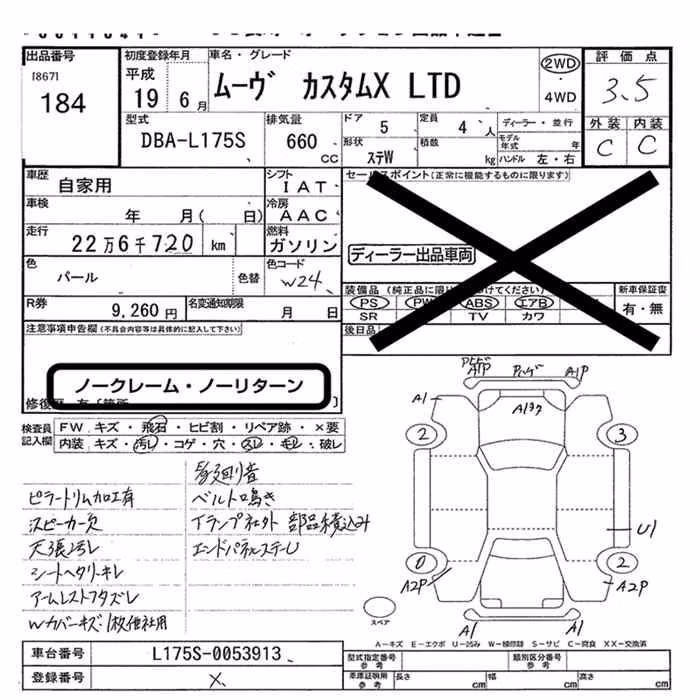 出品番号
[867]
184
初度登録年月
平成
19 6月
車名・グレード
ムーヴ カスタムX LTD
2WD
・
4WD
評価点
3.5
外装 内装
C C
型式
DBA-L175S
排気量
660
CC
ドア
5
定員
4 人
ディーラー・並行
モデル年式 年
形状
ステW
積数
kg
ハンドル 左・右
車歴
自家用
シフト
IAT
車検
年 月( 日)
冷房
AAC
走行
22万6千720 km
燃料
ガソリン
色
パール
色替
色コード
W24
R券
9,260円
名変通知期限
月 日
セールスポイント(正常に機能するものに限ります)
ディーラー出品車両
装備品(純正品に限り
けてください)
PS PW ABS エアB
SR TV カワ
新車保証書
有・無
後日品
注意事項申告欄(不具合内容等は具体的に記入して下さい)
ノークレーム・ノーリターン
検査員記入欄
FW キズ・飛石・ヒビ割・リペア跡・×要
内装 キズ・汚レ・コゲ・穴・スレ・モレ・破レ
ピラートリム加工有
スピーカー欠
天張汚レ
シートヘタリ・キレ
アームレストフタズレ
Wカバーキズ1枚他社用
ベルト鳴き
Tランプ社外 部品積込み
エンドパネルステU
A1P A1P
A1
A1ヨク
2 3
U1
0 2
A2P A2P
A1 A1
スペア
A-キズ E-エクボ U-凹み W-補修跡 S-サビ C-腐食 XX-交換済
車台番号
L175S-0053913
登録番号
X
型式指定番号
参考
類別区分番号
参考
車庫証明用
参考
長さ cm
幅 cm
高さ cm